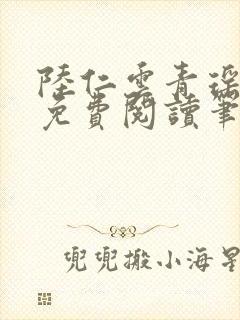 陸仁雲青瑶
免費閱讀筆
兜兜搬小海星